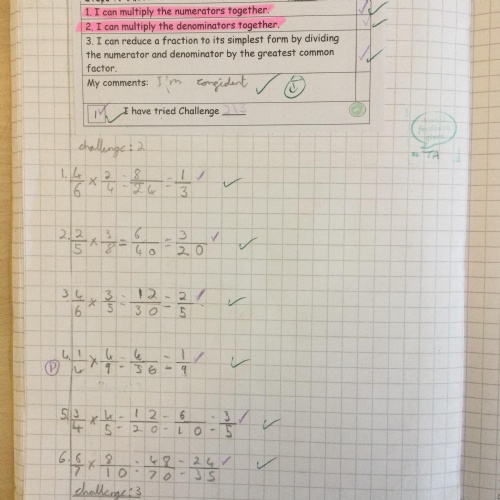 1. I can multiply the numerators together.
2. I can multiply the denominators together.
3. I can reduce a fraction to its simplest form by dividing
the numerator and denominator by the greatest common
factor.
My comments: I'm congident
I have tried Challenge 2&3
challenge: 2
1. 4/6 × 2/4 = 8/24 = 1/3
2. 2/5 × 3/8 = 6/40 = 3/20
3. 4/6 × 3/5 = 12/30 = 2/5
P
4. 1/4 × 4/9 = 4/36 = 1/9
5. 3/4 × 4/5 = 12/20 = 6/10 = 3/5
6. 6/7 × 8/10 = 48/70 = 24/35
challenge: 3